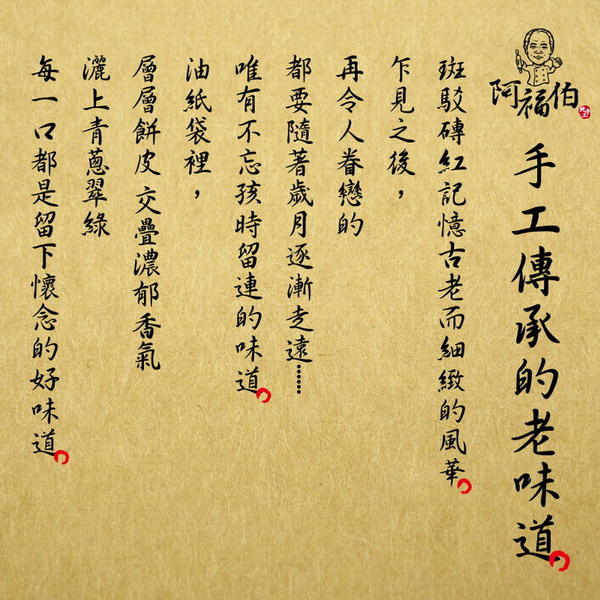 阿福伯
手工傳承的老味道。
斑駁磚紅記憶古老而細緻的風華。
乍見之後，
再令人眷戀的
都要隨著歲月逐漸走遠……
唯有不忘孩時留連的味道。
油紙袋裡，
層層餅皮交疊濃郁香氣
灑上青蔥翠綠
每一口都是留下懷念的好味道。